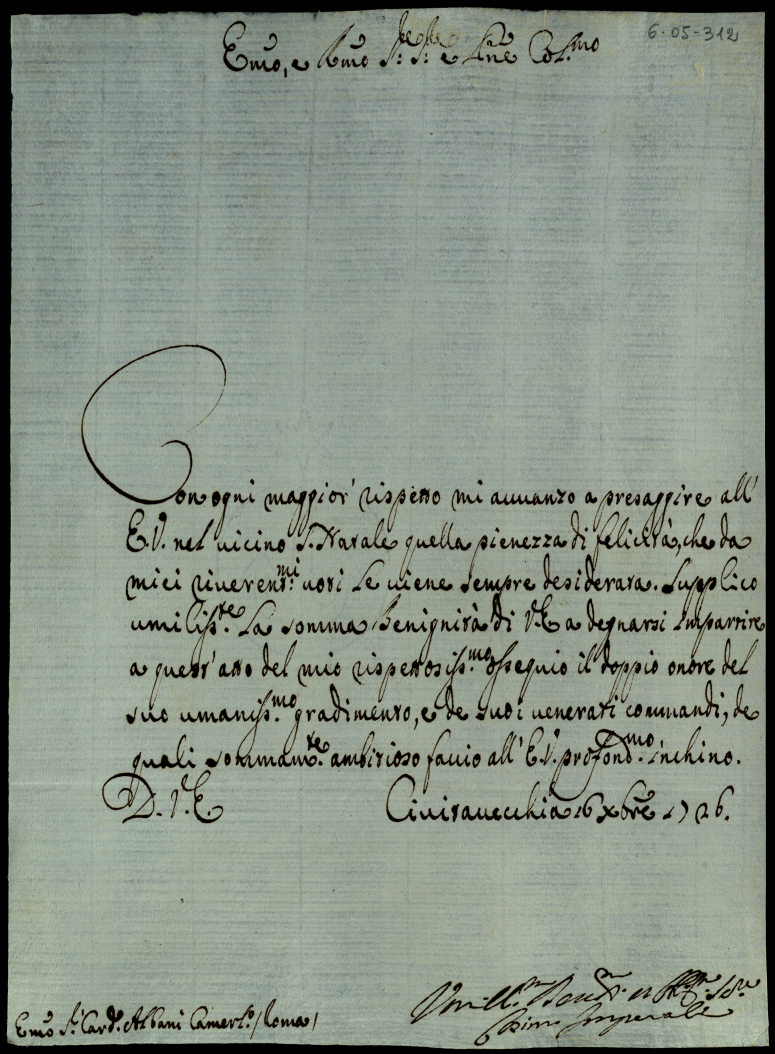 6-05-312
Emo, e Rmo Sr: Sr: e Pñe Col.mo
Con ogni maggior' rispetto mi auuanzo a presaggire all'
E.V. nel uicino S. Natale quella pienezza di felicità, che da
miei riuerent.mi uoti Le uiene sempre desiderata. Supplico
umiliss.te La somma Benignità di V.E. a degnarsi Impartire
a quest'atto del mio rispettosiss.mo ossequio il doppio onore del
suo umaniss.mo gradimento, e de suoi uenerati commandi, de
quali sommam.te ambitioso faccio all'E.V. profond.mo inchino.
D. V.E. Ciuitauecchia 16 Xbre 1726.
Emo Sr. Card. Albani Camerl.o / Roma /
Umill.mo Deuot.mo
Imperiale